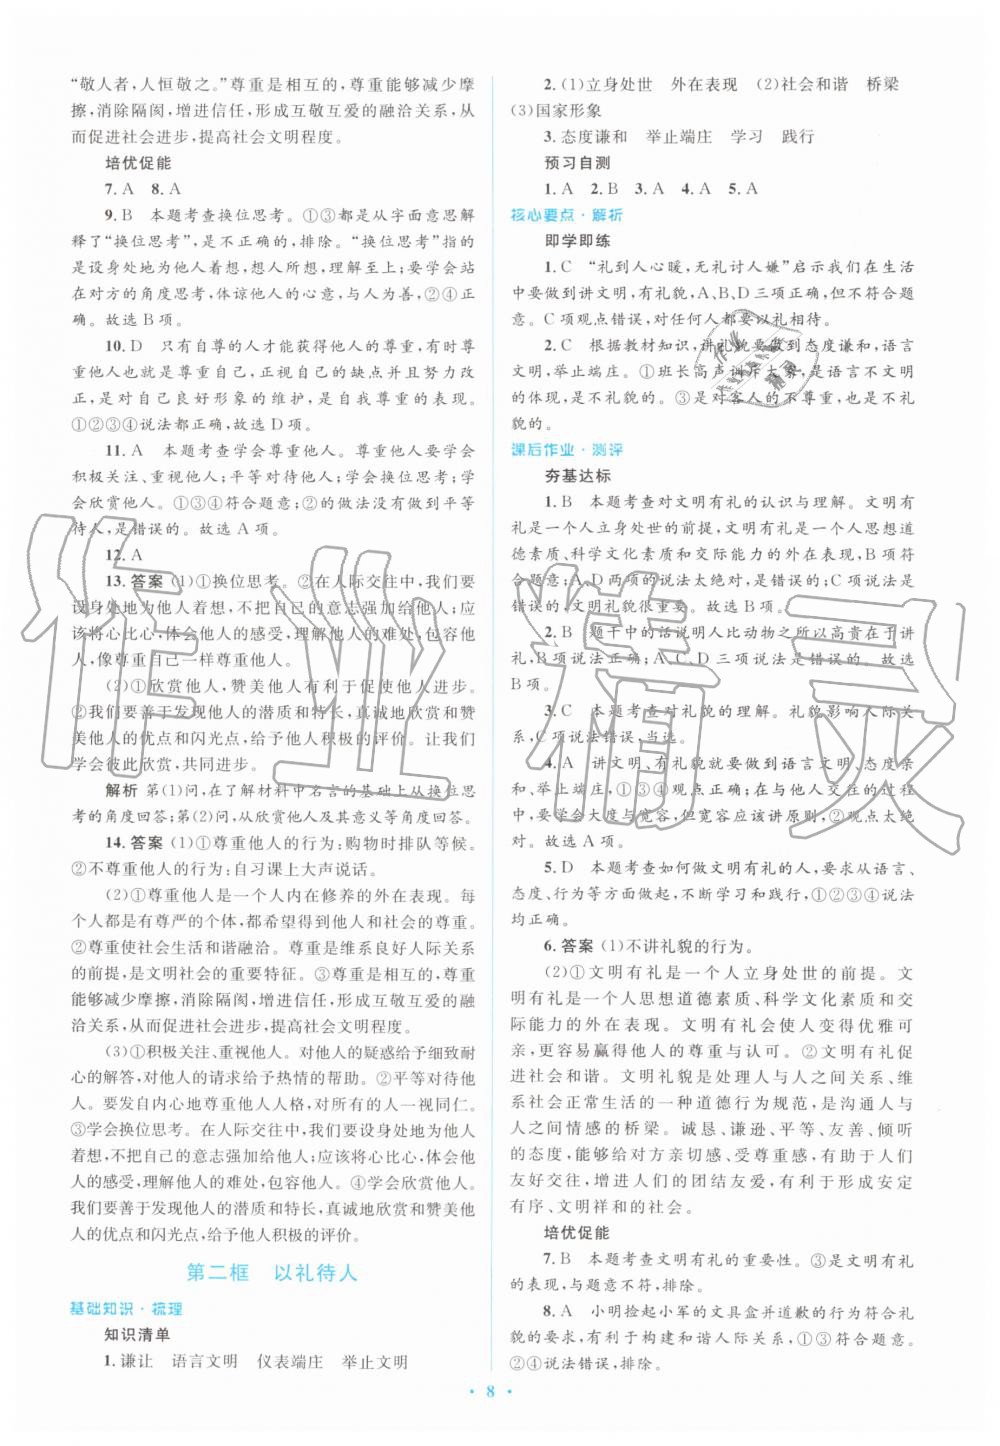 “敬人者,人恒敬之。”尊重是相互的,尊重能够减少摩
擦,消除隔阂,增进信任,形成互敬互爱的融洽关系,从
而促进社会进步,提高社会文明程度。
培优促能
7. A 8. A
9. B 本题考查换位思考。①③都是从字面意思解
释了“换位思考”,是不正确的,排除。“换位思考”指的
是设身处地为他人着想,想人所想,理解至上;要学会站
在对方的角度思考,体谅他人的心意,与人为善,②④正
确。故选 B 项。
10. D 只有自尊的人才能获得他人的尊重,有时尊
重他人也就是尊重自己,正视自己的缺点并且努力改
正,是对自己良好形象的维护,是自我尊重的表现。
①②③④说法都正确,故选 D 项。
11. A 本题考查学会尊重他人。尊重他人要学会
积极关注、重视他人;平等对待他人;学会换位思考;学
会欣赏他人。①③④符合题意;②的做法没有做到平等
待人,是错误的。故选 A 项。
12. A
13. 答案 (1)①换位思考。②在人际交往中,我们要
设身处地为他人着想,不把自己的意志强加给他人;应
该将心比心,体会他人的感受,理解他人的难处,包容他
人,像尊重自己一样尊重他人。
(2)①欣赏他人,赞美他人有利于促使他人进步。
②我们要善于发现他人的潜质和特长,真诚地欣赏和赞
美他人的优点和闪光点,给予他人积极的评价。让我们
学会彼此欣赏,共同进步。
解析 第(1)问,在了解材料中名言的基础上从换位思
考的角度回答;第(2)问,从欣赏他人及其意义等角度回答。
14. 答案 (1)①尊重他人的行为:购物时排队等候。
②不尊重他人的行为:自习课上大声说话。
(2)①尊重他人是一个人内在修养的外在表现。每
个人都是有尊严的个体,都希望得到他人和社会的尊重。
②尊重使社会生活和谐融洽。尊重是维系良好人际关系
的前提,是文明社会的重要特征。③尊重是相互的,尊重
能够减少摩擦,消除隔阂,增进信任,形成互敬互爱的融
洽关系,促进社会进步,提高社会文明程度。
(3)①积极关注、重视他人。对他人的疑惑给予细致耐
心的解答,对他人的请求给予热情的帮助。②平等对待他
人。要发自内心地尊重他人人格,对所有的人一视同仁。
③学会换位思考。在人际交往中,我们要设身处地为他人
着想,不把自己的意志强加给他人;应该将心比心,体会他
人的感受,理解他人的难处,包容他人。④学会欣赏他人。
我们要善于发现他人的潜质和特长,真诚地欣赏和赞美他人
的优点和闪光点,给予他人积极的评价。
第二框 以礼待人
基础知识·梳理
知识清单
1. 谦让 语言文明 仪表端庄 举止文明
2. (1)立身处世 外在表现 (2)社会和谐 桥梁
(3)国家形象
3. 态度谦和 举止端庄 学习 践行
预习自测
1. A 2. B 3. A 4. A 5. A
核心要点·解析
即学即练
1. C “礼到人心暖,无礼讨人嫌”启示我们在生活
中要做到讲文明,有礼貌,A、B、D 三项正确,但不符合题
意。C 项观点错误,对任何人都要以礼相待。
2. C 根据教材知识,讲礼貌要做到态度谦和,语言
文明,举止端庄。①班长高声训斥大家,是语言不文明的
表现,是不礼貌的。③是对客人的不尊重,也是不礼貌
的。
课后作业·测评
夯基达标
1. B 本题考查对文明有礼的认识与理解。文明有
礼是一个人立身处世的前提,文明有礼是一个人思想道
德素质、科学文化素质和交际能力的外在表现,B 项符
合题意;A、D 两项的说法太绝对,是错误的;C 项是错误
的,文明礼貌很重要。故选 B 项。
2. B 题干中的话说明人比动物之所以高贵在于讲
礼,B 项说法正确;A、C、D 三项说法是错误的。故选
B 项。
3. C 本题考查对礼貌的理解。礼貌影响人际关
系,C 项说法错误,当选。
4. A 讲文明、有礼貌,就要做到语言文明、态度亲
和、举止端庄,①③④观点正确;在与他人交往的过程
中,要学会大度与宽容,但宽容应该讲原则,②观点太绝
对。故选 A 项。
5. D 本题考查如何做文明有礼的人,要求从语言、
态度、行为等方面做起,不断学习和践行,①②③④说法
均正确。
6. 答案 (1)不讲礼貌的行为。
(2)①文明有礼是一个人立身处世的前提。文
明有礼是一个人思想道德素质、科学文化素质和交
际能力的外在表现。文明有礼会使人变得优雅可
亲,更容易赢得他人的尊重与认可。②文明有礼促
进社会和谐。文明礼貌是处理人与人之间关系、维
系社会正常生活的一种道德行为规范,是沟通人与
人之间情感的桥梁。诚恳、谦逊、平等、友善、倾听
的态度,能够给对方亲切感、受尊重感,有助于人们
友好交往,增进人们的团结友爱,有利于形成安定
有序、文明祥和的社会。
培优促能
7. B 本题考查文明有礼的重要性。③是文明有礼
的表现,与题意不符,排除。
8. A 小明捡起小军的文具盒并道歉的行为符合礼
貌的要求,有利于构建和谐人际关系,①③符合题意。
②④说法错误,排除。
· 8 ·
作业精灵